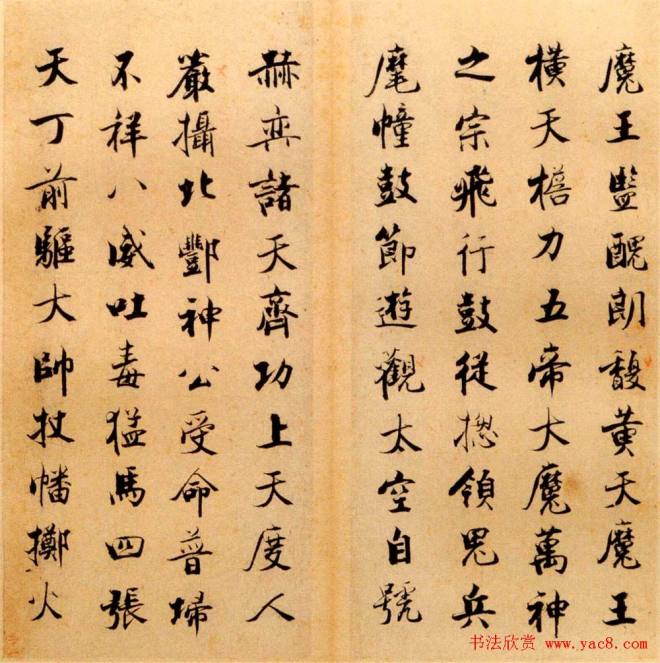 魔王監醜朗馥黃天魔王
橫天檐力五帝大魔萬神
之宗飛行鼓從揔領鬼兵
麾幢鼓節遊觀太空自號
赫奕諸天齊功上天度人
嚴攝北酆神公受命普掃
不祥八威吐毒猛馬四張
天丁前驅大帥杖幡擲火
书法欣赏 www.yac8.com